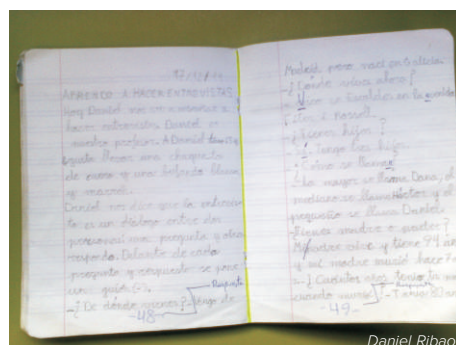 17/12/14
APRENDO A HACER ENTREVISTAS
Hoy Daniel nos va a enseñar a
hacer entrevistas. Daniel es
nuestro profesor. A Daniel
gusta llevar una chaqueta
de cuero y una bufanda blanca
y marrón.
Daniel nos dice que la entrevis-
ta es un diálogo entre dos
personas: una pregunta y otra
responde. Delante de cada
pregunta y respuesta se pone
un guión (-).
-¿De dónde vienes? Vengo de
Respuesta
-48-
Madrid pero nací en Galicia
-¿Dónde vives ahora?
Vivo en
¿Tienes hijos?
-Sí. Tengo tres hijos
-¿Cómo se llaman
-La mayor se llama Dana, el
mediano se llama Héctor y el
pequeño se llama Daniel.
-¿Tienes madre o padre?
Mi padre vive y tiene 94 años
y mi madre murió hace
-¿Cuántos años tenía tu madre
cuando murió? -Tenía 80 años
Respuesta
-49-
Daniel Ribao